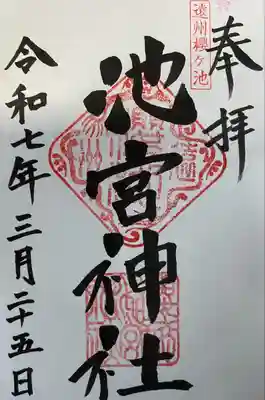 奉拝
遠州櫻ヶ池
池宮神社
令和七年三月二十五日